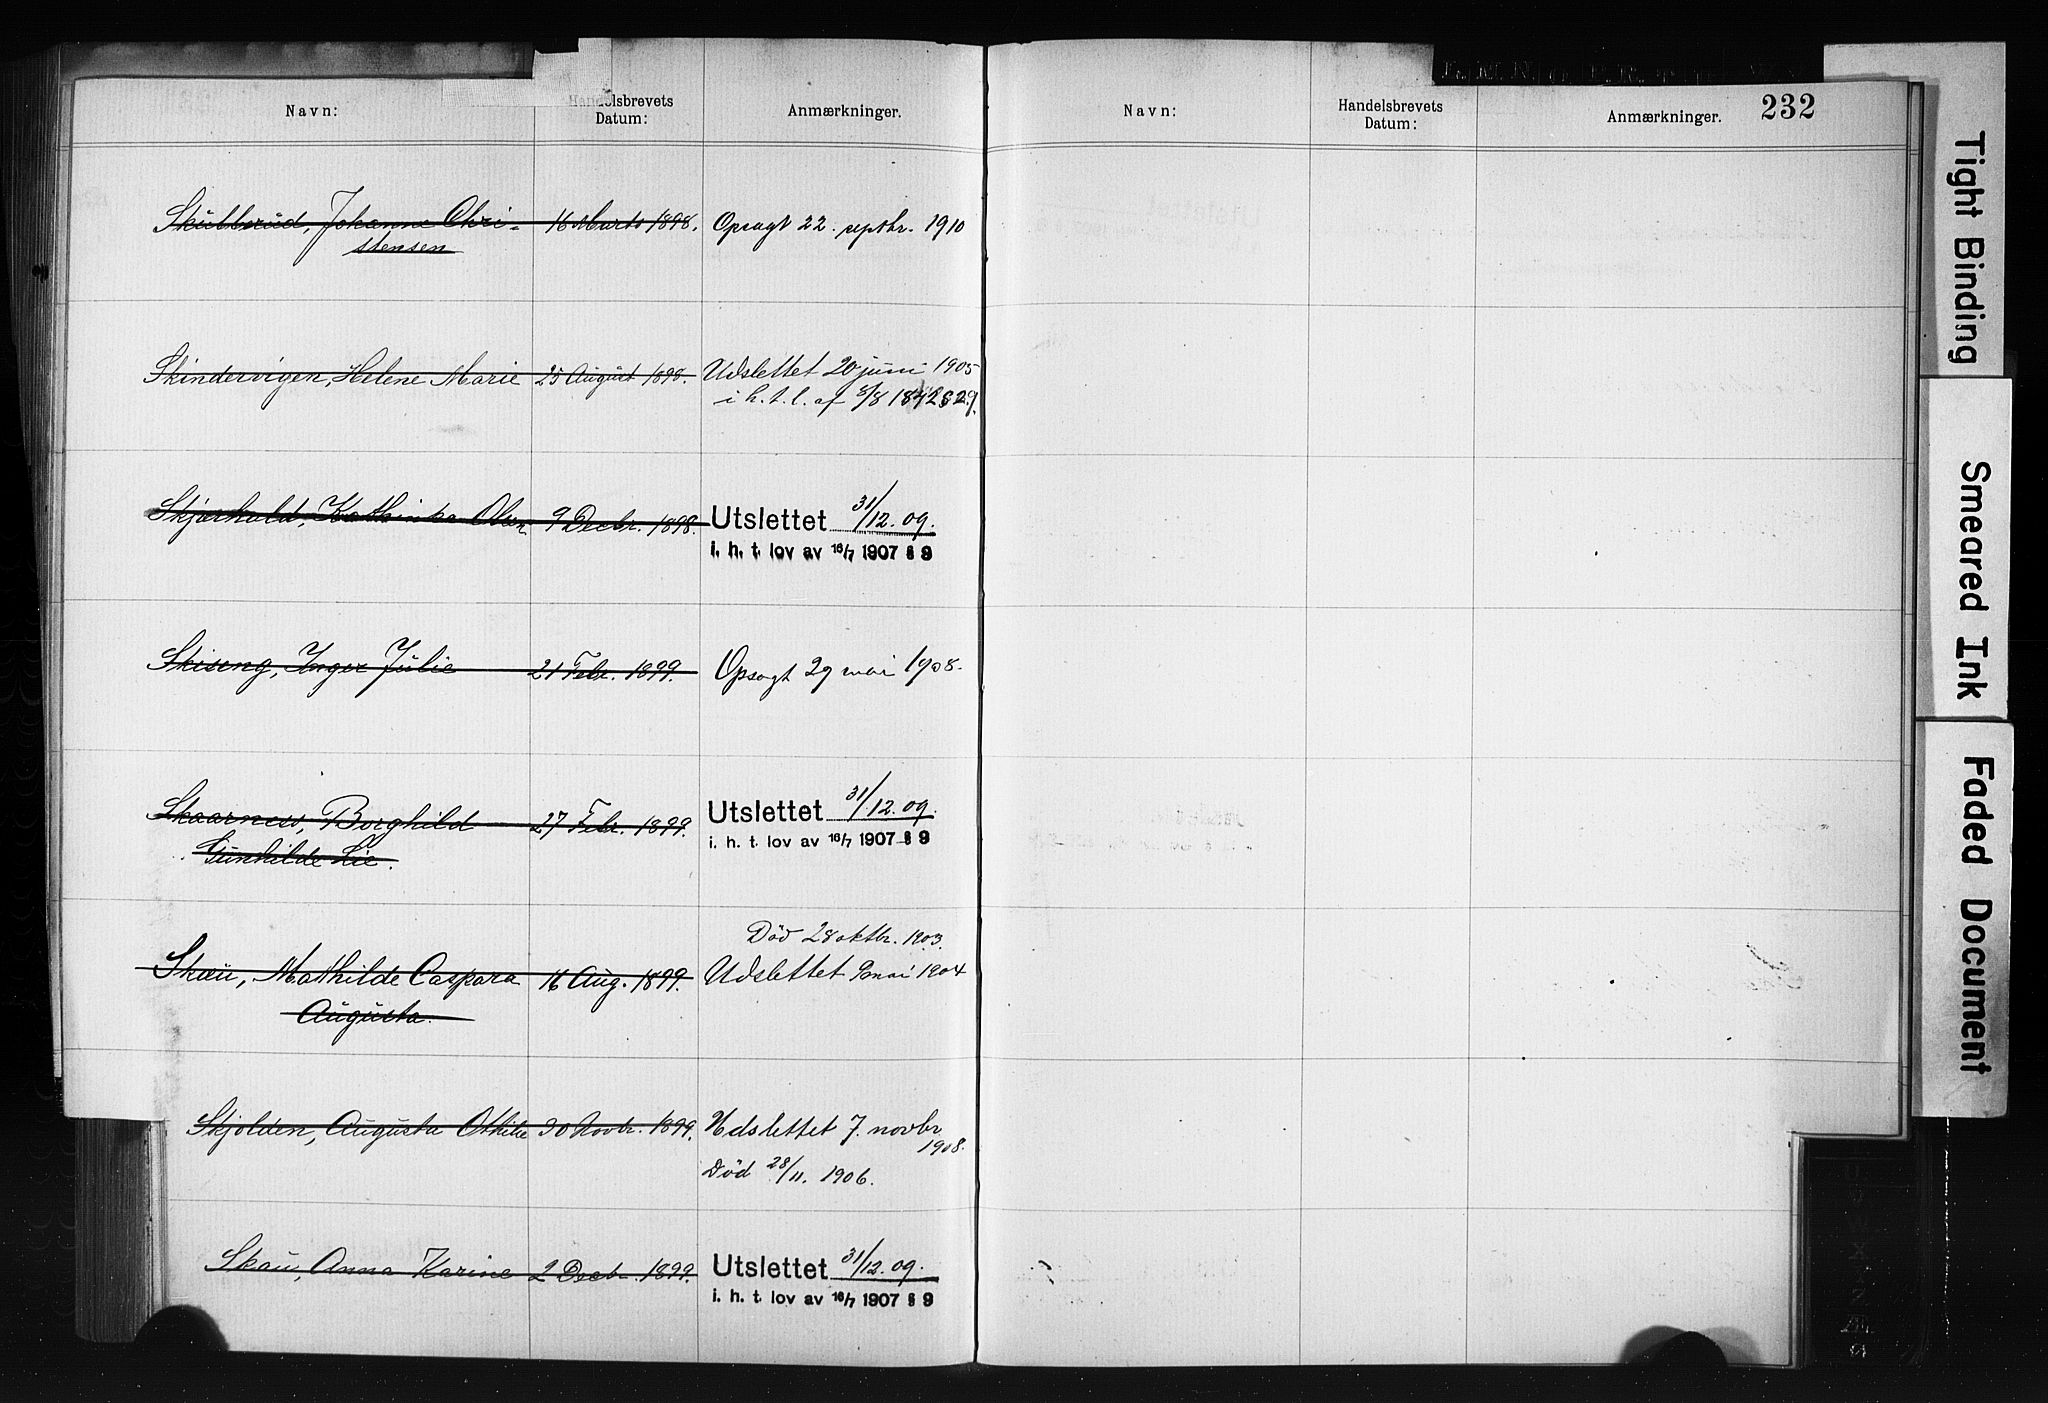 Navn:
Handelsbrevets
Datum:
Anmærkninger.
Skullerud, Johanne Chri-
stensen
16 Marts 1898.
Opsagt 22. septbr. 1910
Skindervigen, Helene Marie
25 August 1898.
Udslettet 20 juni 1905
i h. t. l. af 8/8 1842 § 29.
Skjærhald, Kathinka Olsen
9 Decbr. 1898.
Utslettet 31/12.09.
i. h. t. lov av 16/7 1907 § 9
Skiseng, Inger Julie
21 Febr. 1899.
Opsagt 29 mai 1908.
Skaarness, Borghild
Gunhilde Lie.
27 Febr. 1899.
Utslettet 31/12.09.
i. h. t. lov av 16/7 1907 § 9
Skau, Mathilde Caspara
Augusta.
16 Aug. 1899.
Død 28 oktbr. 1903.
Udslettet 9 mai 1904
Skjolden, Augusta Othilie
30 Novbr. 1899.
Udslettet 7. novbr
1908.
Død 28/11. 1906.
Skau, Anna Karine
2 Decbr. 1899.
Utslettet 31/12.09.
i. h. t. lov av 16/7 1907 § 9
Navn:
Handelsbrevets
Datum:
Anmærkninger.
232
Tight Binding
Smeared Ink
Faded Document